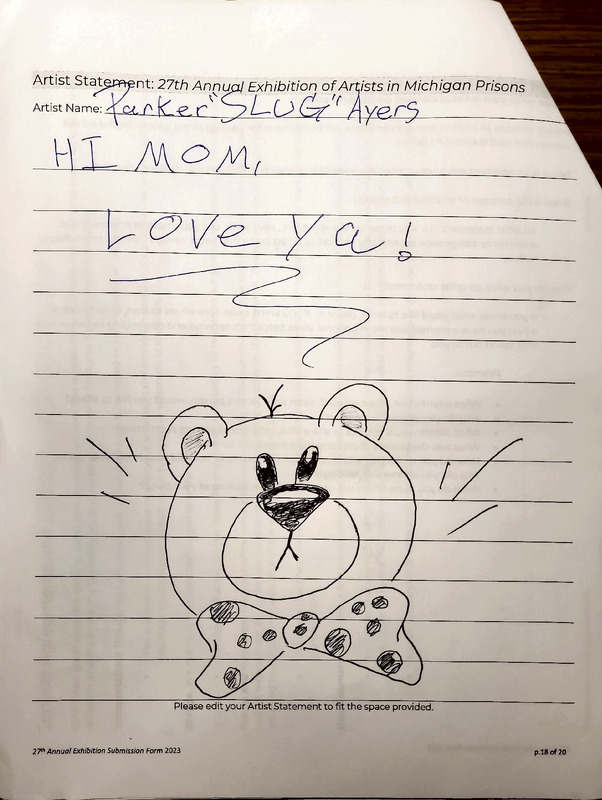 Artist Statement: 27th Annual Exhibition of Artists in Michigan Prisons
Artist Name: Parker "SLUG" Ayers
HI MOM,
Love Ya!
Please edit your Artist Statement to fit the space provided.
27th Annual Exhibition Submission Form 2023
p.18 of 20